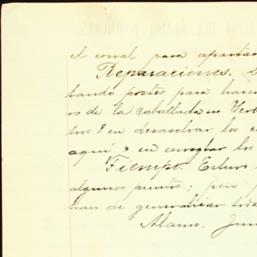 el corral para apartar
Reparaciones.
tando postes para hacer
os de la caballada en
tos y en desazolvar los
aquí y en arreglar los
Tiempo.
algunos puntos; pero
han de generalizar
Alamo. Jun